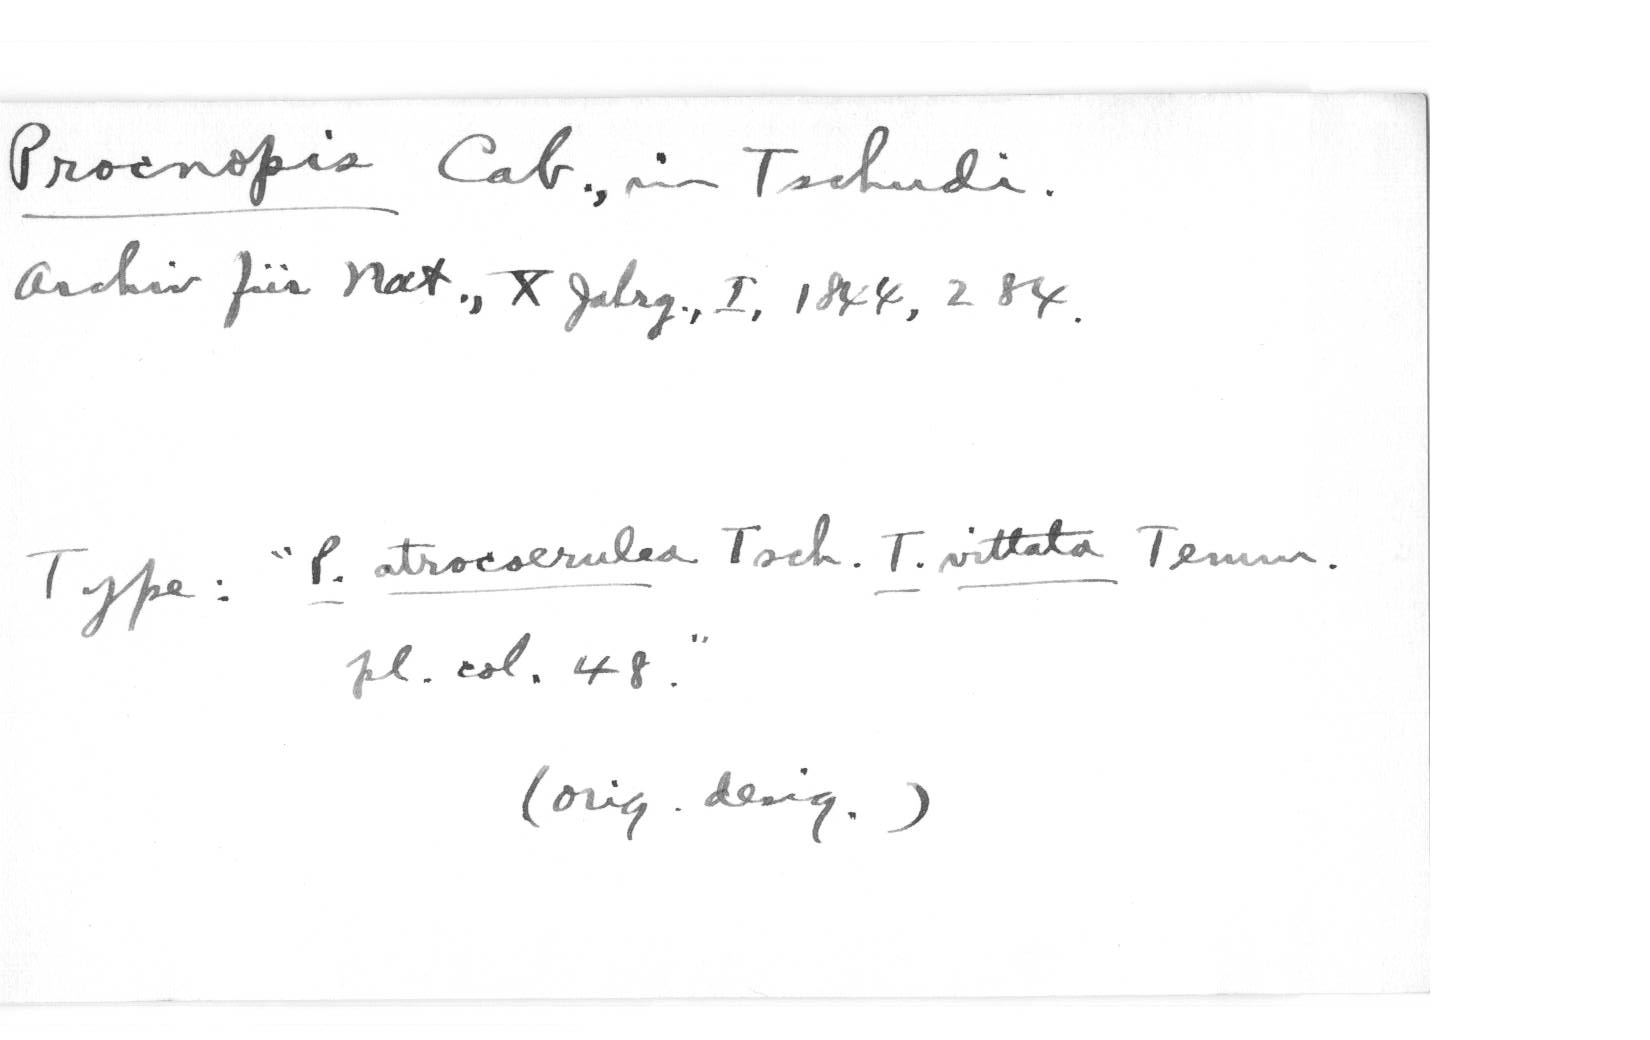 Procnopis Cab., in Tschudi.
Archiv für Nat., X Jahrg., I, 1844, 284.
Type: "P. atrocaerulea Tsch. T. vittata Temm.
pl. col. 48."
(orig. desig.)